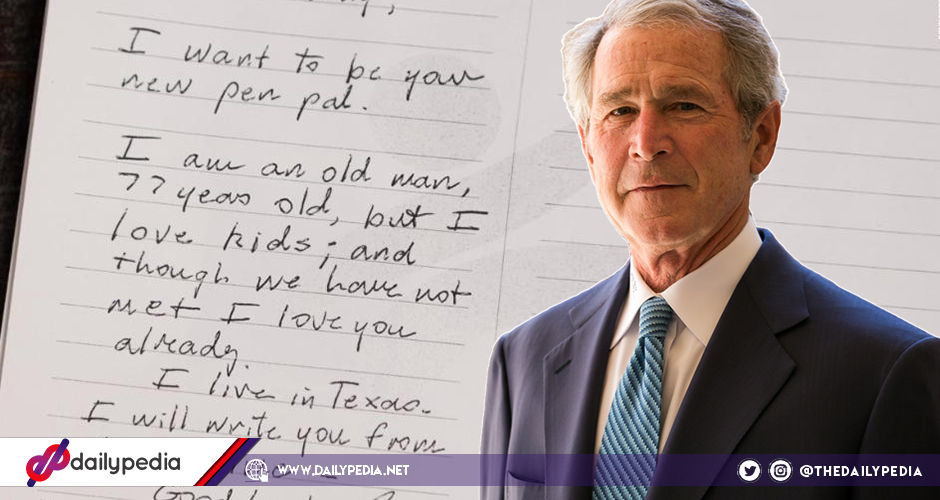 I want to be your
new pen pal.
I am an old man,
77 years old, but I
love kids; and
though we have not
met I love you
already.
I live in Texas.
I will write you from
dailypedia
WWW.DAILYPEDIA.NET
@THEDAILYPEDIA